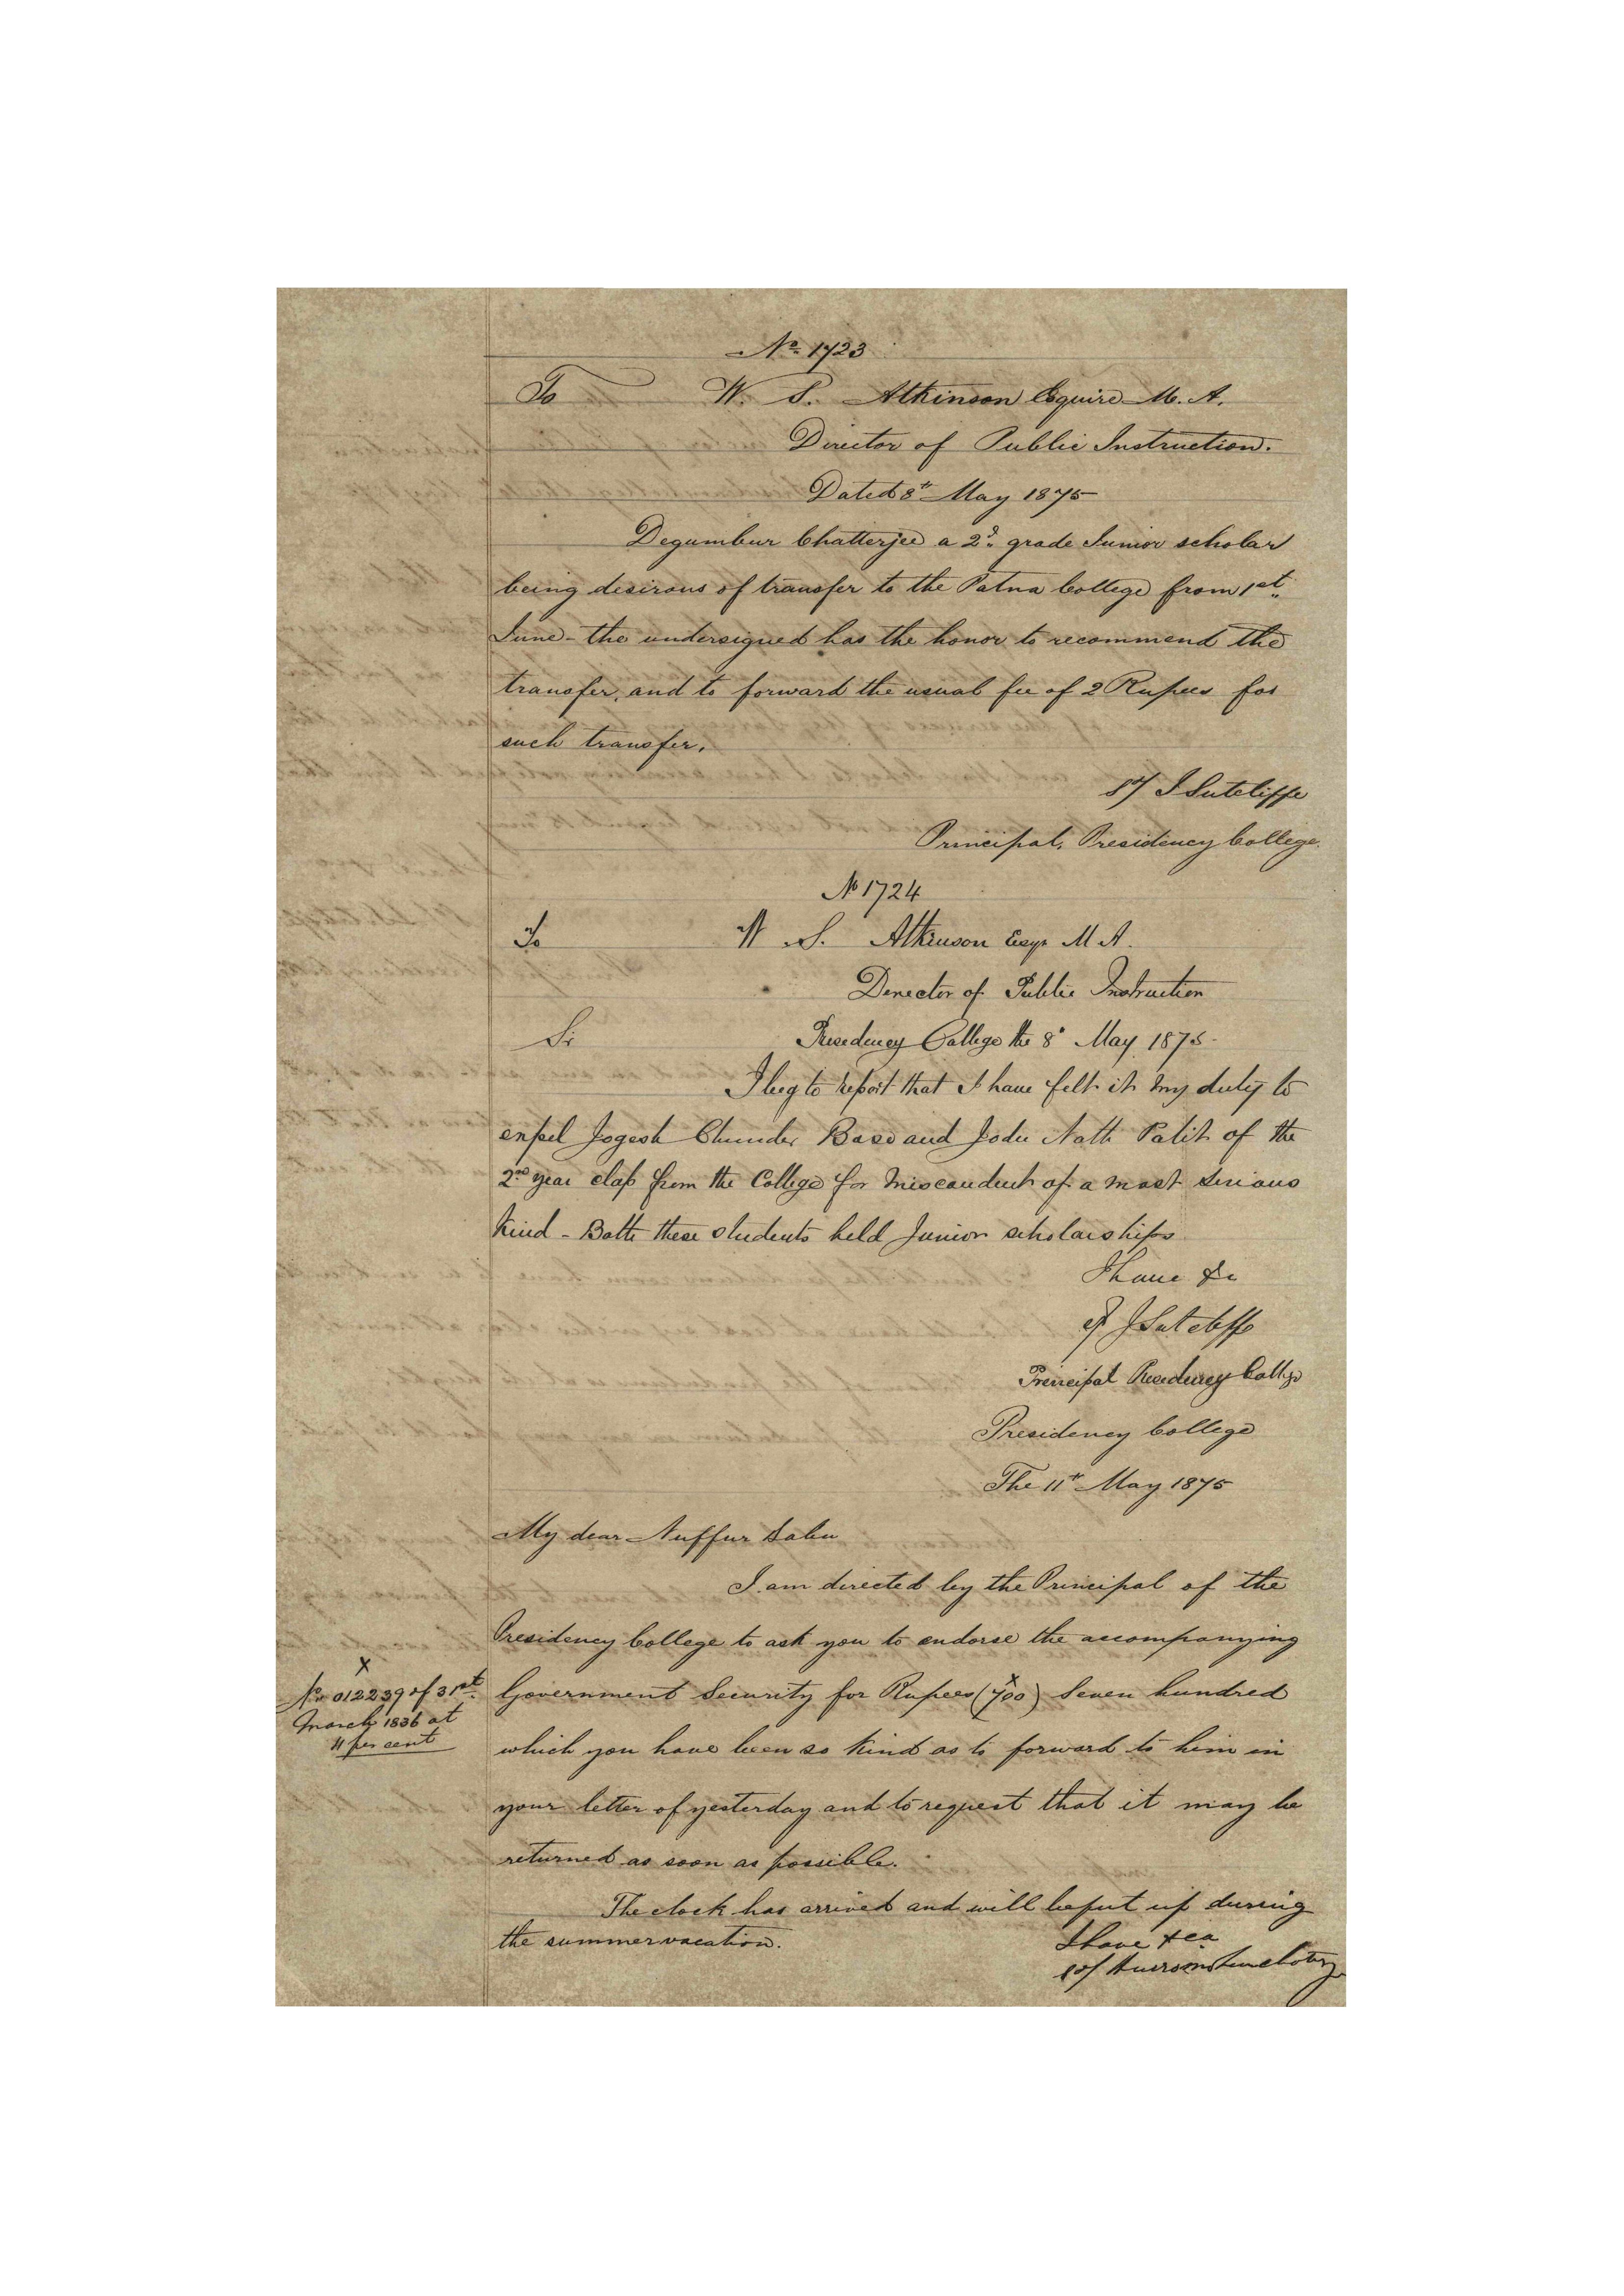 No. 1723
To W. S. Atkinson Esquire M. A.
Director of Public Instruction.
Dated 8th May 1875
Degumbur Chatterjee a 2d. grade Junior scholar
being desirous of transfer to the Patna College from 1st
June - the undersigned has the honor to recommend the
transfer, and to forward the usual fee of 2 Rupees for
such transfer.
Sd/ J Sutcliffe
Principal, Presidency College.
No 1724
To W S. Atkinson Esqr M A.
Director of Public Instruction
Sir Presidency College the 8th May 1875
I beg to report that I have felt it my duty to
expel Jogesh Chunder Bose and Jodu Nath Palit of the
2nd year class from the College for misconduct of a most serious
kind - Both these students held Junior scholarships
I have &c
Sd/ J Sutcliffe
Principal Presidency College
Presidency College
The 11th May 1875
My dear Nuffur Babu
I am directed by the Principal of the
Presidency College to ask you to endorse the accompanying
X
Government Security for Rupees (700) X Seven hundred
No 012239 of 31st
March 1836 at
4 per cent
which you have been so kind as to forward to him in
your letter of yesterday and to request that it may be
returned as soon as possible.
The clock has arrived and will be put up during
the summer vacation.
I have &ca
Sd/